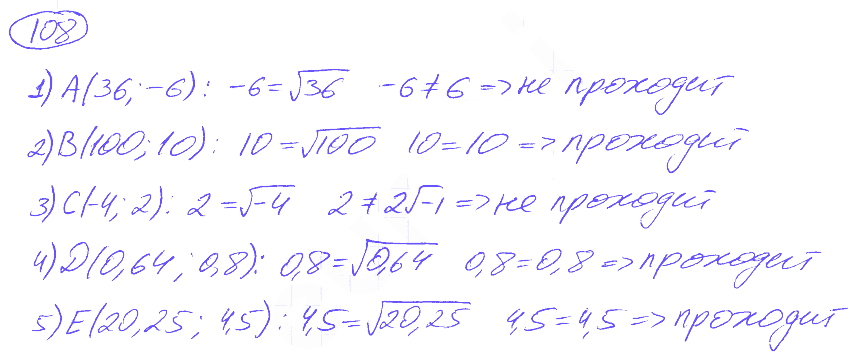 108
1) A(36; -6): -6=√36 -6≠6 => не проходит
2) B(100; 10): 10=√100 10=10 => проходит
3) C(-4; 2): 2=√-4 2≠2√-1 => не проходит
4) D(0,64; 0,8): 0,8=√0,64 0,8=0,8 => проходит
5) E(20,25; 4,5): 4,5=√20,25 4,5=4,5 => проходит